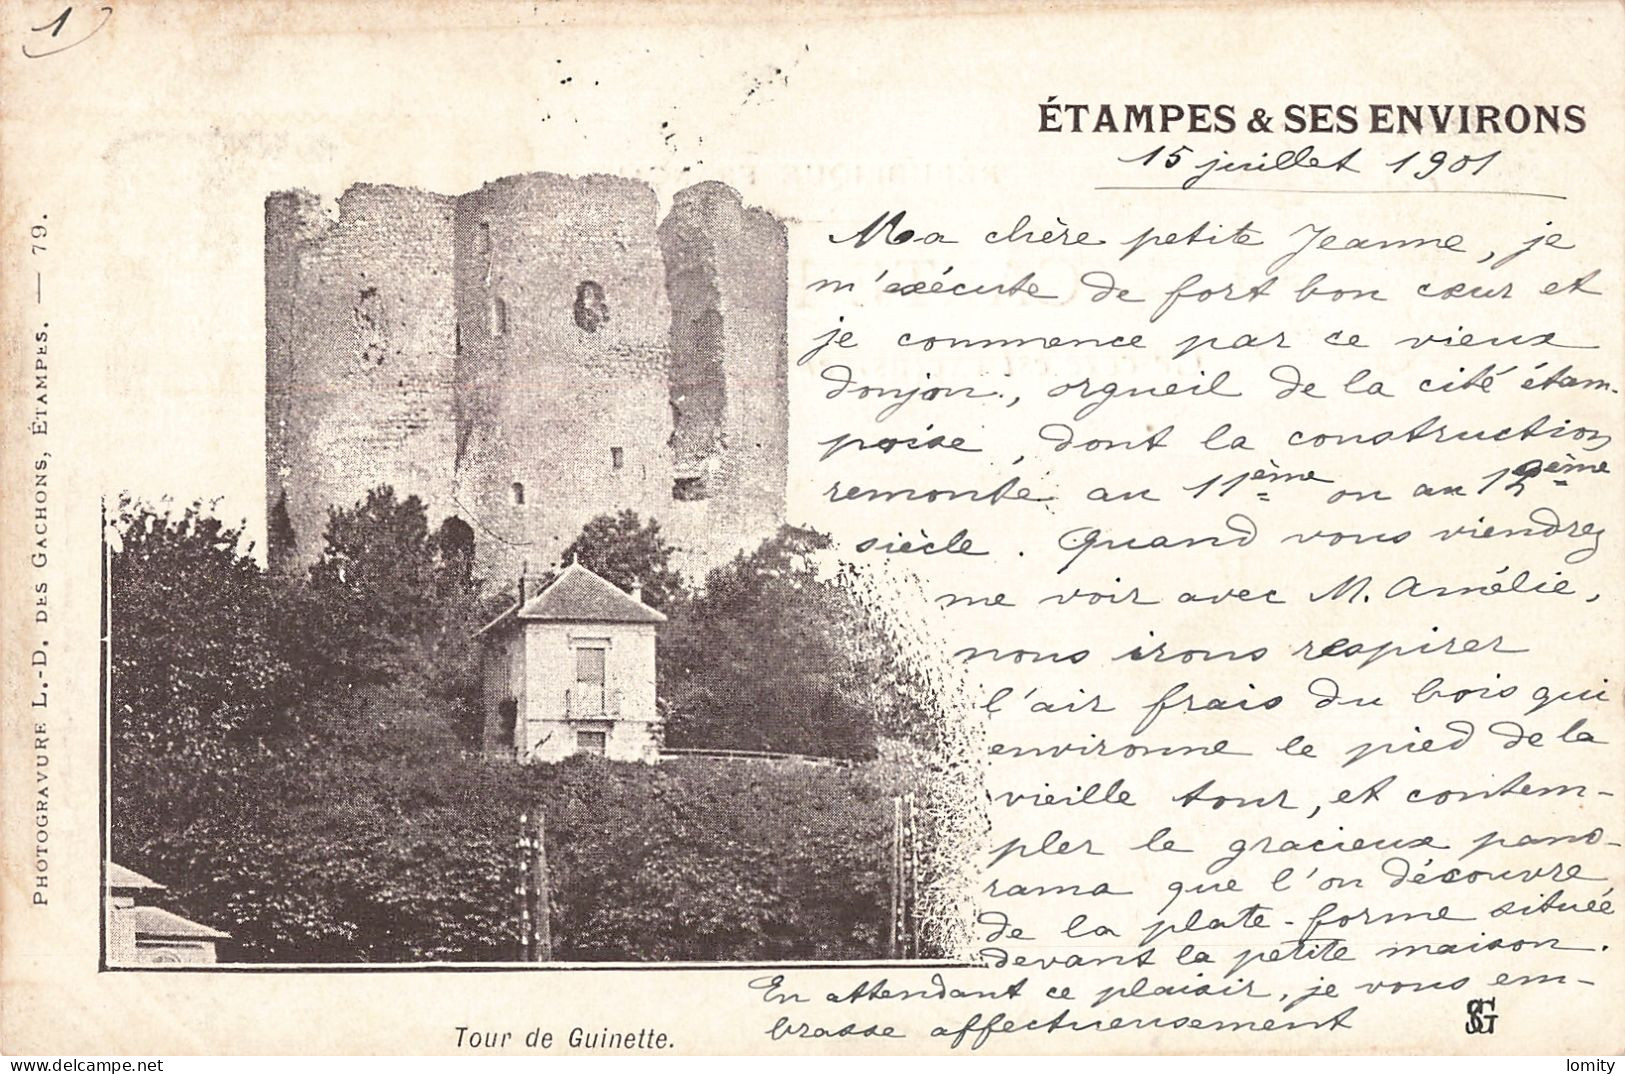 1
ÉTAMPES & SES ENVIRONS
15 juillet 1901
Ma chère petite Jeanne, je
m'exécute de fort bon cœur et
je commence par ce vieux
donjon, orgueil de la cité étam-
poise, dont la construction
remonte au 11ème ou au 12ème
siècle. Quand vous viendrez
me voir avec M. Amélie,
nous irons respirer
l'air frais du bois qui
environne le pied de la
vieille tour, et contem-
pler le gracieux pano-
rama que l'on découvre
de la plate-forme située
devant la petite maison.
En attendant ce plaisir, je vous em-
brasse affectueusement
SG
PHOTOGRAVURE L.-D. DES GACHONS, ÉTAMPES. — 79.
Tour de Guinette.
delcampe.net
lomity